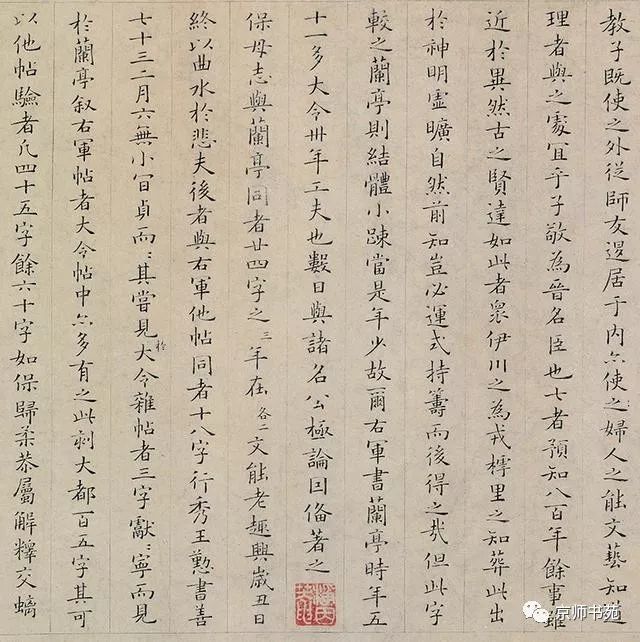 教子既使之外從師友邊居于内亦使之婦人之能文藝知道
理者與之處宜乎子敬為晉名臣也七者預知八百年餘事雖
近於異然古之賢達如此者衆伊川之為戎樗里之知葬此出
於神明虛曠自然前知豈必運式持籌而後得之哉但此字
較之蘭亭則結體小疎當是年少故爾右軍書蘭亭時年五
十一多大令卅年工夫也數日與諸名公極論因俻著之
保母志與蘭亭同者廿四字之三年在各二文能老趣興歲丑日
終以曲水於悲夫後者與右軍他帖同者十八字行秀王懃書善
七十三二月六無小宜貞而〻其嘗見於大令雜帖者三字獻〻寧而見
於蘭亭叙右軍帖者大令帖中亦多有之此刻大都百五字其可
以他帖驗者凡四十五字餘六十字如保歸柔恭屬解釋交螭
京师书苑